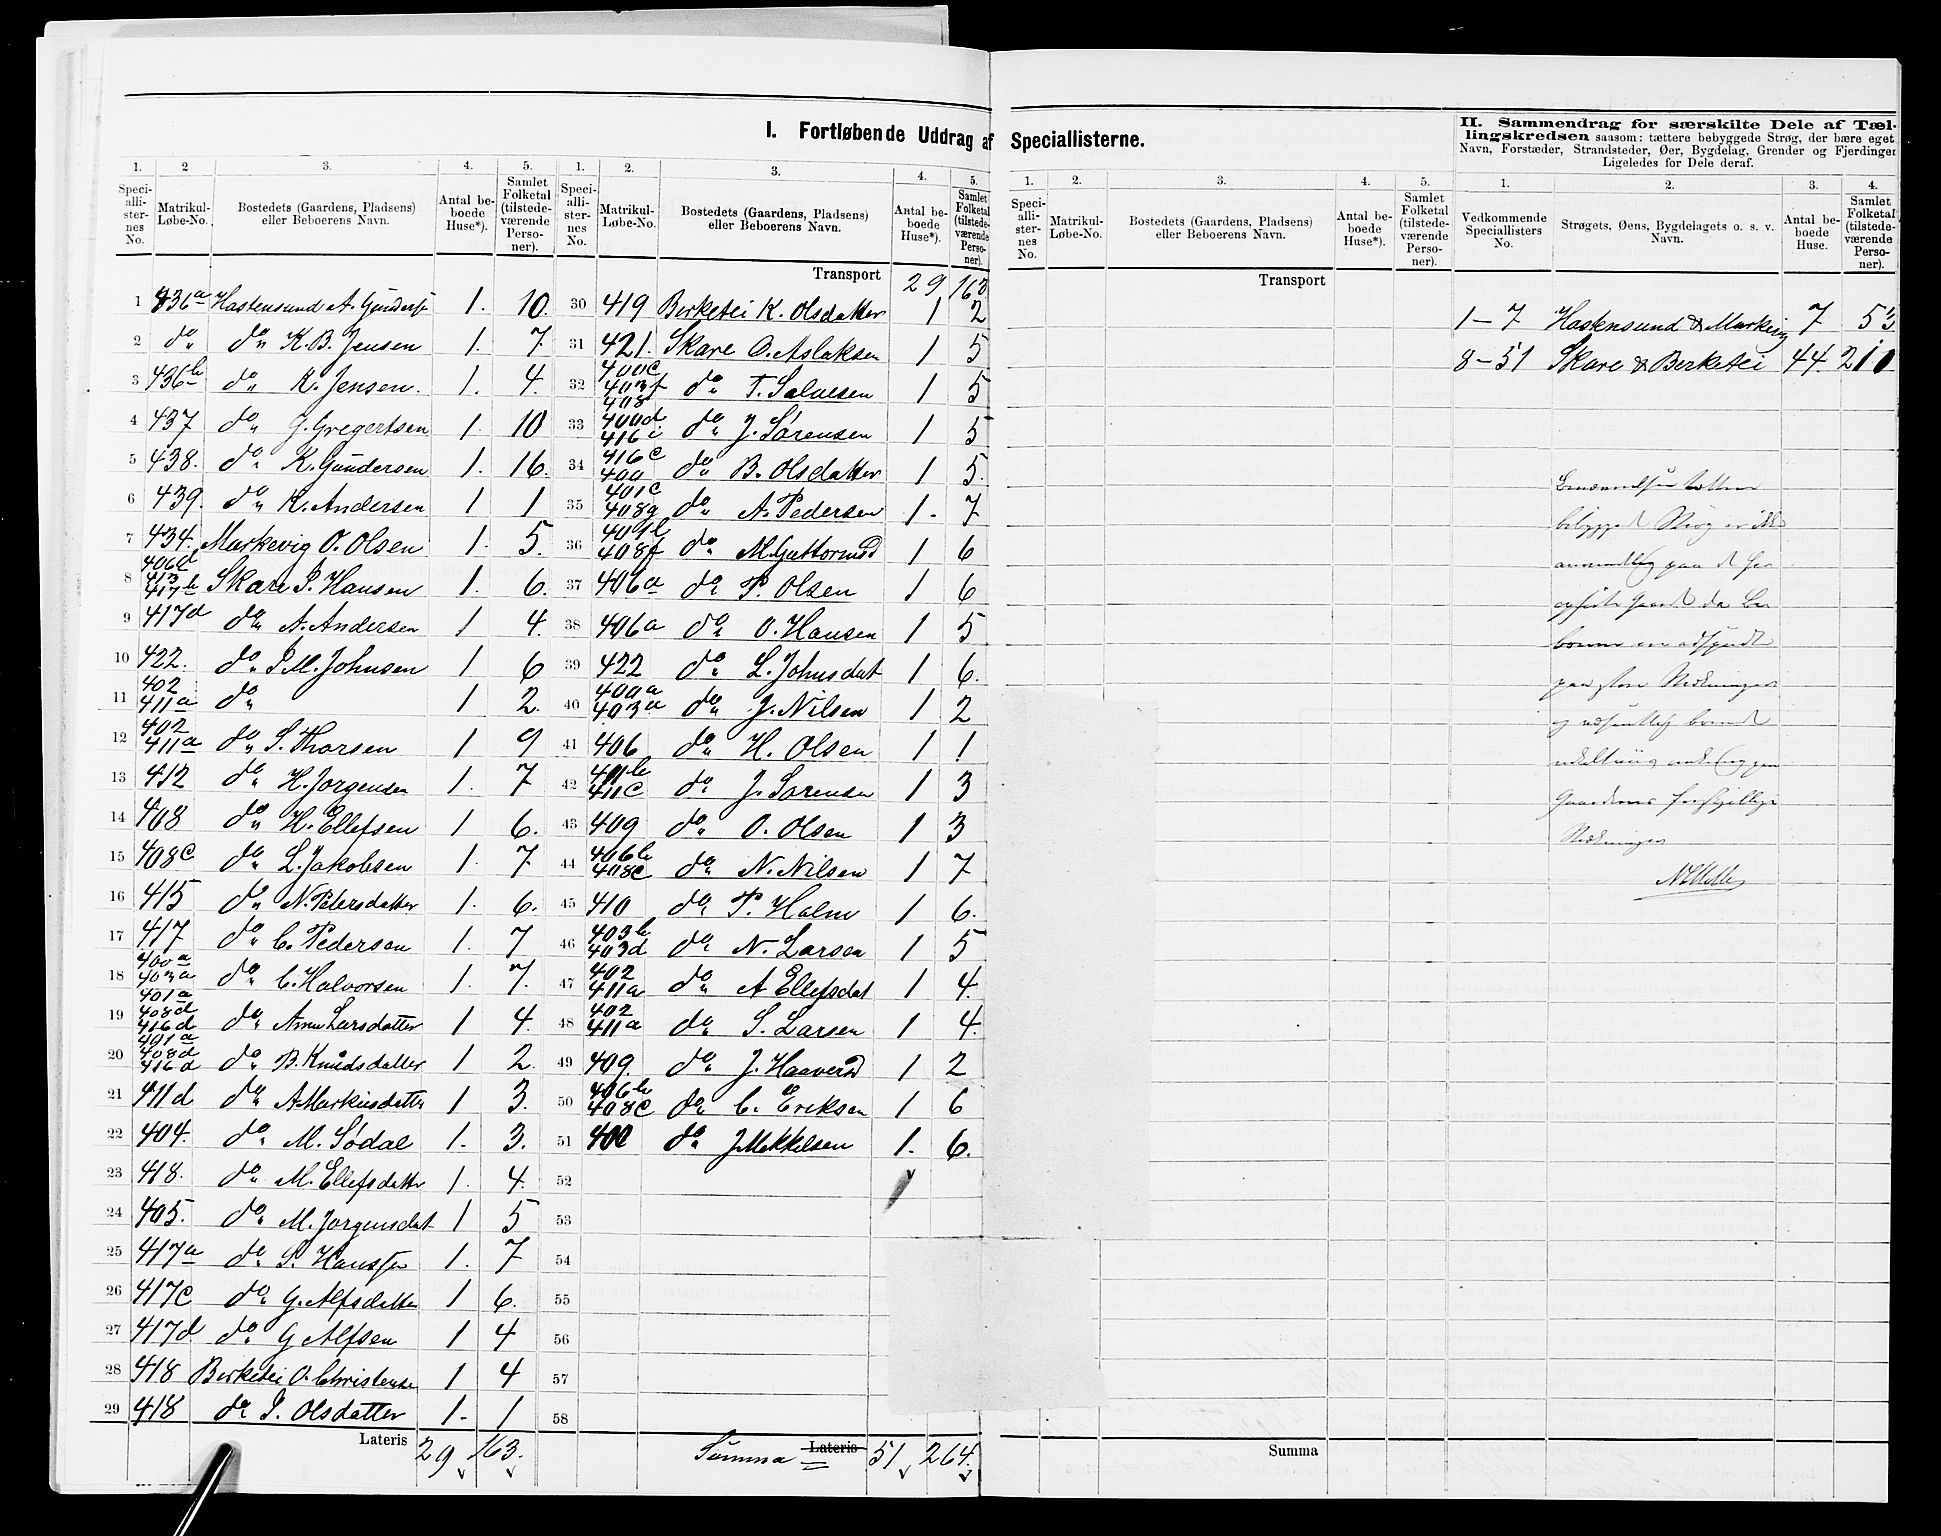 I. Fortløbende Uddrag af Speciallisterne.
1. 2 3. 4. 5. 1. 2. 3. 4. 5.
Speciallisternes No. Matrikul-Løbe-No. Bostedets (Gaardens, Pladsens) eller Beboerens Navn. Antal beboede Huse*). Samlet Folketal (tilstedeværende Personer).
Speciallisternes No. Matrikul-Løbe-No. Bostedets (Gaardens, Pladsens) eller Beboerens Navn. Antal beboede Huse*). Samlet Folketal (tilstedeværende Personer).
1 436a Hastensund A. 1. 10.
2 do do K. B. Jensen 1. 7
3 436b do K. Jensen. 1. 4.
4 437 do G. Gregertsen 1. 10
5 438. do K. Gundersen 1. 16.
6 439. do K. Andersen 1 1
7 434. Markevig O. Olsen 1. 5.
8 413 417b Skare P. Hansen 1. 6.
9 417d do A. Andersen 1 4.
10 422. do P. M. Johnsen 1 6
11 402 411a do 1 2.
12 402 411a do S. Thorsen 1 9
13 412 do H. Jorgensen 1. 7
14 408 do H. Ellefsen 1 6.
15 408c do L. Jakobsen 1. 7
16 415 do N. Petersdatter 1. 6.
17 417 do C. Pedersen 1. 7
18 400a 403a do C. Halvorsen 1. 7.
19 401a 408d 416d do Anne Larsdatter 1 4.
20 401a 408d 416d do B. Knudsdatter 1 2.
21 411d do A Markusdatter 1 3.
22 404. do M. Sødal 1. 3.
23 418. do M. Ellefsdatter 1. 4.
24 405. do M. Jorgensdat 1 5
25 417a do S. Hansen 1. 7
26 417c do G. Alfsdatter 1 6.
27 417d do G Alfsen 1 4
28 418 Berketei O. Christense 1 4
29 418 do P. Olsdatter 1. 1
Lateris 29 163.
Transport 29 163
30 419 Berketei K. Olsdatter 1 2
31 421. Skare O. Aslaksen 1 5
32 400c 403f 408 do T. Salvesen 1 5
33 400d 416i do J. Sørensen 1 5
34 416c 400 do B. Olsdatter 1 5.
35 401c 408g do A. Pedersen 1. 7
36 401b 408f do M. Guttormsd 1 6
37 406a do P. Olsen 1 6
38 406a do O. Hansen 1 5
39 422 do L. Johnsdat 1 6.
40 400a 403a do J. Nilsen 1 2
41 406 do H. Olsen 1 1
42 401b 411c do J. Sorensen 1 3
43 409 do O. Olsen 1 3
44 406b 408c do N. Nilsen 1 7
45 410 do P. Holm 1 6.
46 403b 403d do N. Larsen 1 5
47 402 411a do A Ellefsdat 1 4.
48 402 411a do S. Larsen 1 4.
49 409. do J. Haaversd 1 2
50 406b 408c do C. Eriksen 1 6
51 400 do J Mekkelsen 1. 6.
52
53
54
55
56
57
58
Summa Lateris 51 264.
1. 2. 3. 4. 5.
Speciallisternes No. Matrikul-Løbe-No. Bostedets (Gaardens, Pladsens) eller Beboerens Navn. Antal beboede Huse*). Samlet Folketal (tilstedeværende Personer).
Transport
Summa
II. Sammendrag for særskilte Dele af Tællingskredsen saasom: tættere bebyggede Strøg, der bære eget
Navn, Forstæder, Strandsteder, Øer, Bygdelag, Grender og Fjerdinger
Ligeledes for Dele deraf.
1. 2. 3. 4.
Vedkommende Speciallisters No. Strøgets, Øens, Bygdelagets o. s. v. Navn. Antal beboede Huse. Samlet Folketal (tilstedeværende Personer).
1–7 Hastensund & Markevig 7 53
8–51 Skare & Berketei 44 211
bebygget Strøg er ikke
paa
opførte Gaard da
paa store Strækninger
Gaardens forskjellige
Strækninger